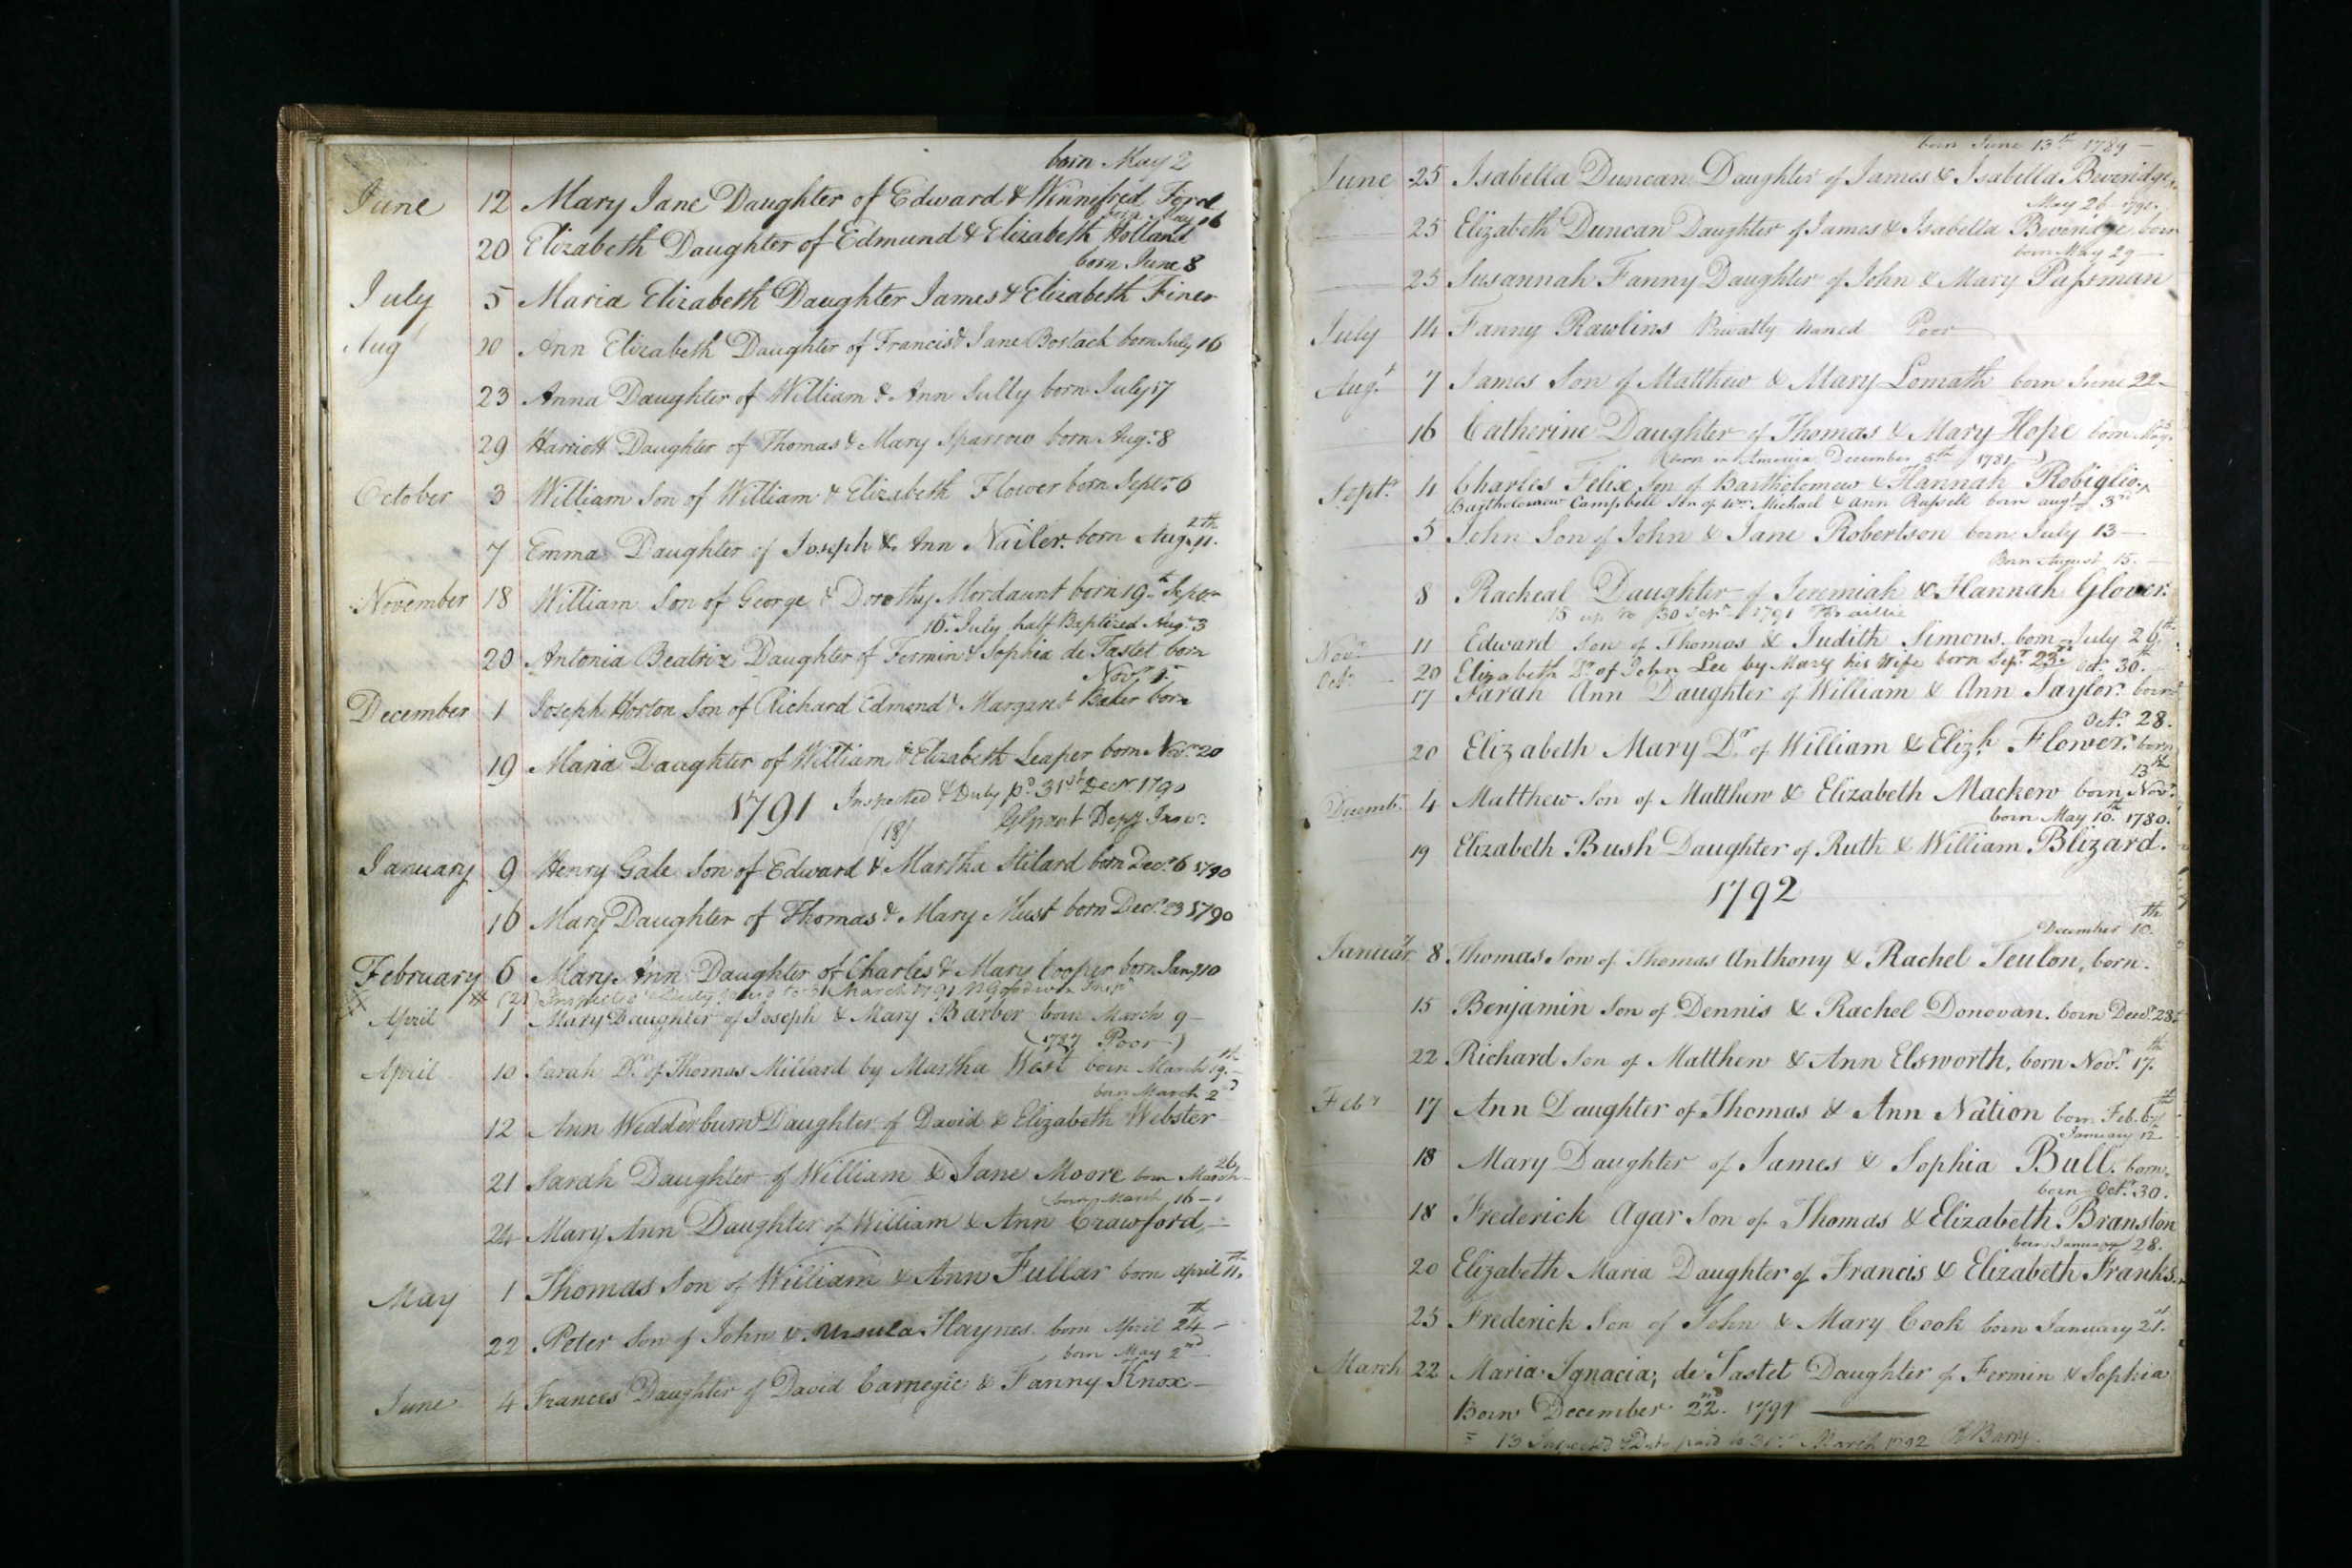 born May 2
June 12 Mary Jane Daughter of Edward & Winnefred Ford
born May 16
20 Elizabeth Daughter of Edmund & Elizabeth Holland
born June 8
July 5 Maria Elizabeth Daughter James & Elizabeth Finer
Augt 20 Ann Elizabeth Daughter of Francis & Jane Bostack born July 16
23 Anna Daughter of William & Ann Sully born July 17
29 Harriott Daughter of Thomas & Mary Sparrow born Augt 8
October 3 William Son of William & Elizabeth Flower born Septr 6
7 Emma Daughter of Joseph & Ann Nailer. born Aug. 11.
November 18 William Son of George & Dorothy Mordaunt born 19th Sepr
10th July half Baptized Augt 3
20 Antonia Beatriz Daughter of Fermin & Sophia de Tastet born
Novr 1st
December 1 Joseph Horton Son of Richard Edmond & Margaret Baker born
19 Maria Daughter of William & Elizabeth Leaper born Novr 20
1791 Inspected & Duty pd 31st Decr 1790
(18) Depy Inspr
January 9 Henry Gale Son of Edward & Martha Stilard born Decr 6 1790
16 Mary Daughter of Thomas & Mary Must born Decr 23 1790
February 6 Mary Ann Daughter of Charles & Mary Cooper born Jany 10
(21) Inspected & Duty paid to 31 March 1791 Goodwin Inspr
April 1 Mary Daughter of Joseph & Mary Barber born March 9
(1787 Poor)
April 10 Sarah Dr of Thomas Millard by Martha West born March 19th
born March 2d
12 Ann Wedderburn Daughter of David & Elizabeth Webster
26
21 Sarah Daughter of William & Jane Moore born March
born March 16
24 Mary Ann Daughter of William & Ann Crawford
May 1 Thomas Son of William & Ann Fullar born April 11th.
22 Peter Son of John & Ursula Haynes born April 24th
born May 2nd
June 4 Frances Daughter of David Carnegie & Fanny Knox
born June 13th 1789
June 25 Isabella Duncan Daughter of James & Isabella Beveridge
May 26 1791.
25 Elizabeth Duncan Daughter of James & Isabella Beveridge born
born May 29
25 Susannah Fanny Daughter of John & Mary Passman
July 14 Fanny Rawlins Privatly named Poor
Augt 7 James Son of Matthew & Mary Lomath born June 22
16 Catherine Daughter of Thomas & Mary Hope born May
(born in America December 5th 1781)
Septr 4 Charles Felix Son of Bartholomew & Hannah Robiglio
Bartholomew Campbell Son of Wm Michael & Ann Russell born augt 3rd
5 John Son of John & Jane Robertson born July 13
Born August 15.
8 Racheal Daughter of Jeremiah & Hannah Glover.
15 up to 30 Sepr 1791
Novr 11 Edward Son of Thomas & Judith Simons. born July 26th
Octr 20 Elizabeth Dr of John Lee by Mary his Wife born Sepr 23rd
Octr 30th.
17 Sarah Ann Daughter of William & Ann Taylor. born
Octr 28.
20 Elizabeth Mary Dr of William & Elizh Flower. born
13th
Decembr 4 Matthew Son of Matthew & Elizabeth Mackerv born Novr
born May 10th 1780.
19 Elizabeth Bush Daughter of Ruth & William Blizard.
1792
December 10th
January 8 Thomas Son of Thomas Anthony & Rachel Teulon, born.
15 Benjamin Son of Dennis & Rachel Donovan. born Decr 28th
22 Richard Son of Matthew & Ann Elsworth, born Novr 17th
Febr 17 Ann Daughter of Thomas & Ann Nation born Feb. 6th
January 12
18 Mary Daughter of James & Sophia Bull. born
born Octr 30.
18 Frederick Agar Son of Thomas & Elizabeth Branston
born January 28.
20 Elizabeth Maria Daughter of Francis & Elizabeth Franks.
25 Frederick Son of John & Mary Cook born January 21st.
March 22 Maria Ignacia, de Tastet Daughter of Fermin & Sophia
Born December 22nd. 1791
13 Inspected & Duty paid to 31st March 1792 Barry.